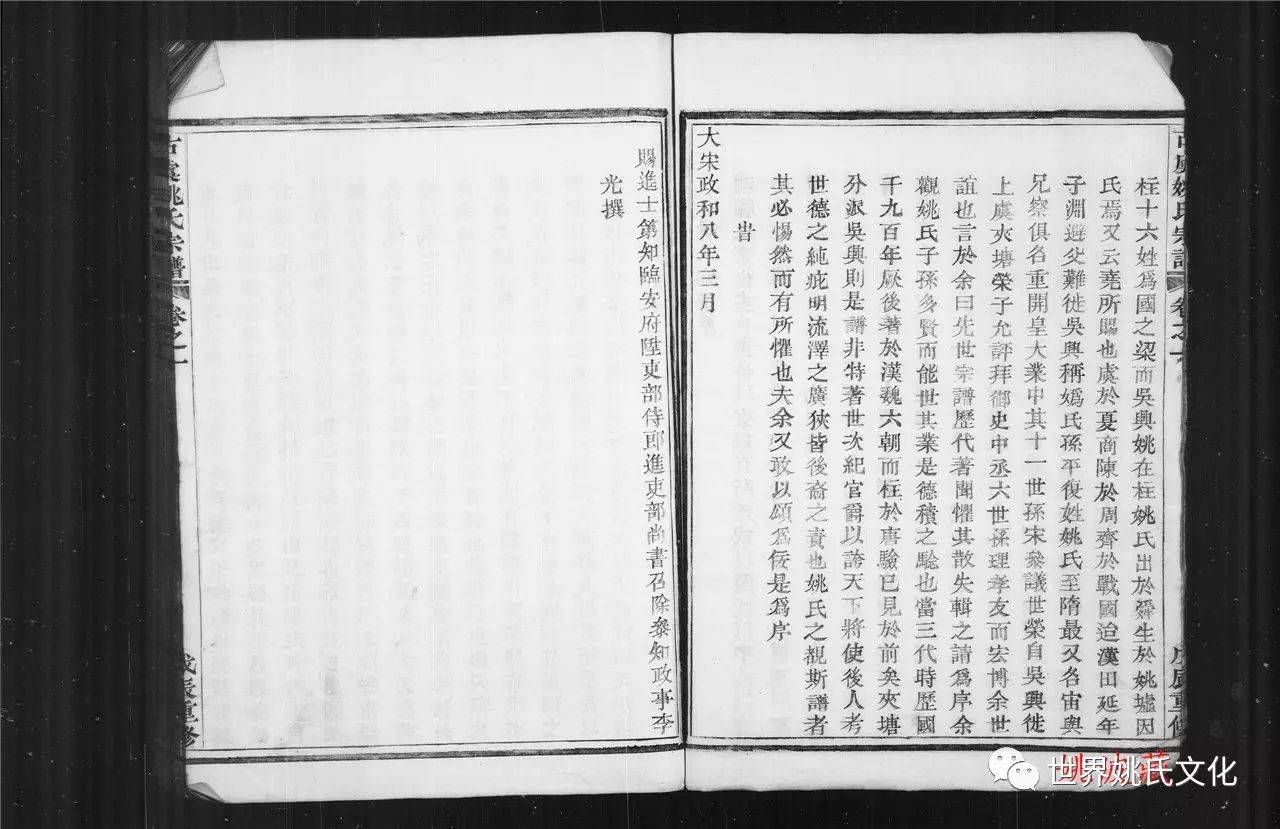 柱十六姓爲國之梁而吳興姚在柱姚氏出於舜生於姚墟因
氏焉又云堯所賜也虞於夏商陳於周齊於戰國迨漢田延年
子淵避父難徙吳興稱嬀氏孫平復姓姚氏至隋最又名宙與
兄察俱名重開皇大業中其十一世孫宋參議世榮自吳興徙
上虞夾塘榮子允評拜御史中丞六世孫理孝友而宏博余世
誼也言於余曰先世宗譜歷代著聞懼其散失輯之請爲序余
觀姚氏子孫多賢而能世其業是德積之驗也當三代時歷國
千九百年厥後著於漢魏六朝而柱於唐驗已見於前矣夾塘
分派吳興則是譜非特著世次紀官爵以誇天下將使後人考
世德之純疵明流澤之廣狹皆後裔之責也姚氏之覩斯譜者
其必惕然而有所懼也夫余又敢以頌爲佞是爲序
旹
大宋政和八年三月
賜進士第知臨安府陞吏部侍郎進吏部尚書召除叅知政事李
光撰
古虞姚氏宗譜
卷之一
戊辰重修
世界姚氏文化